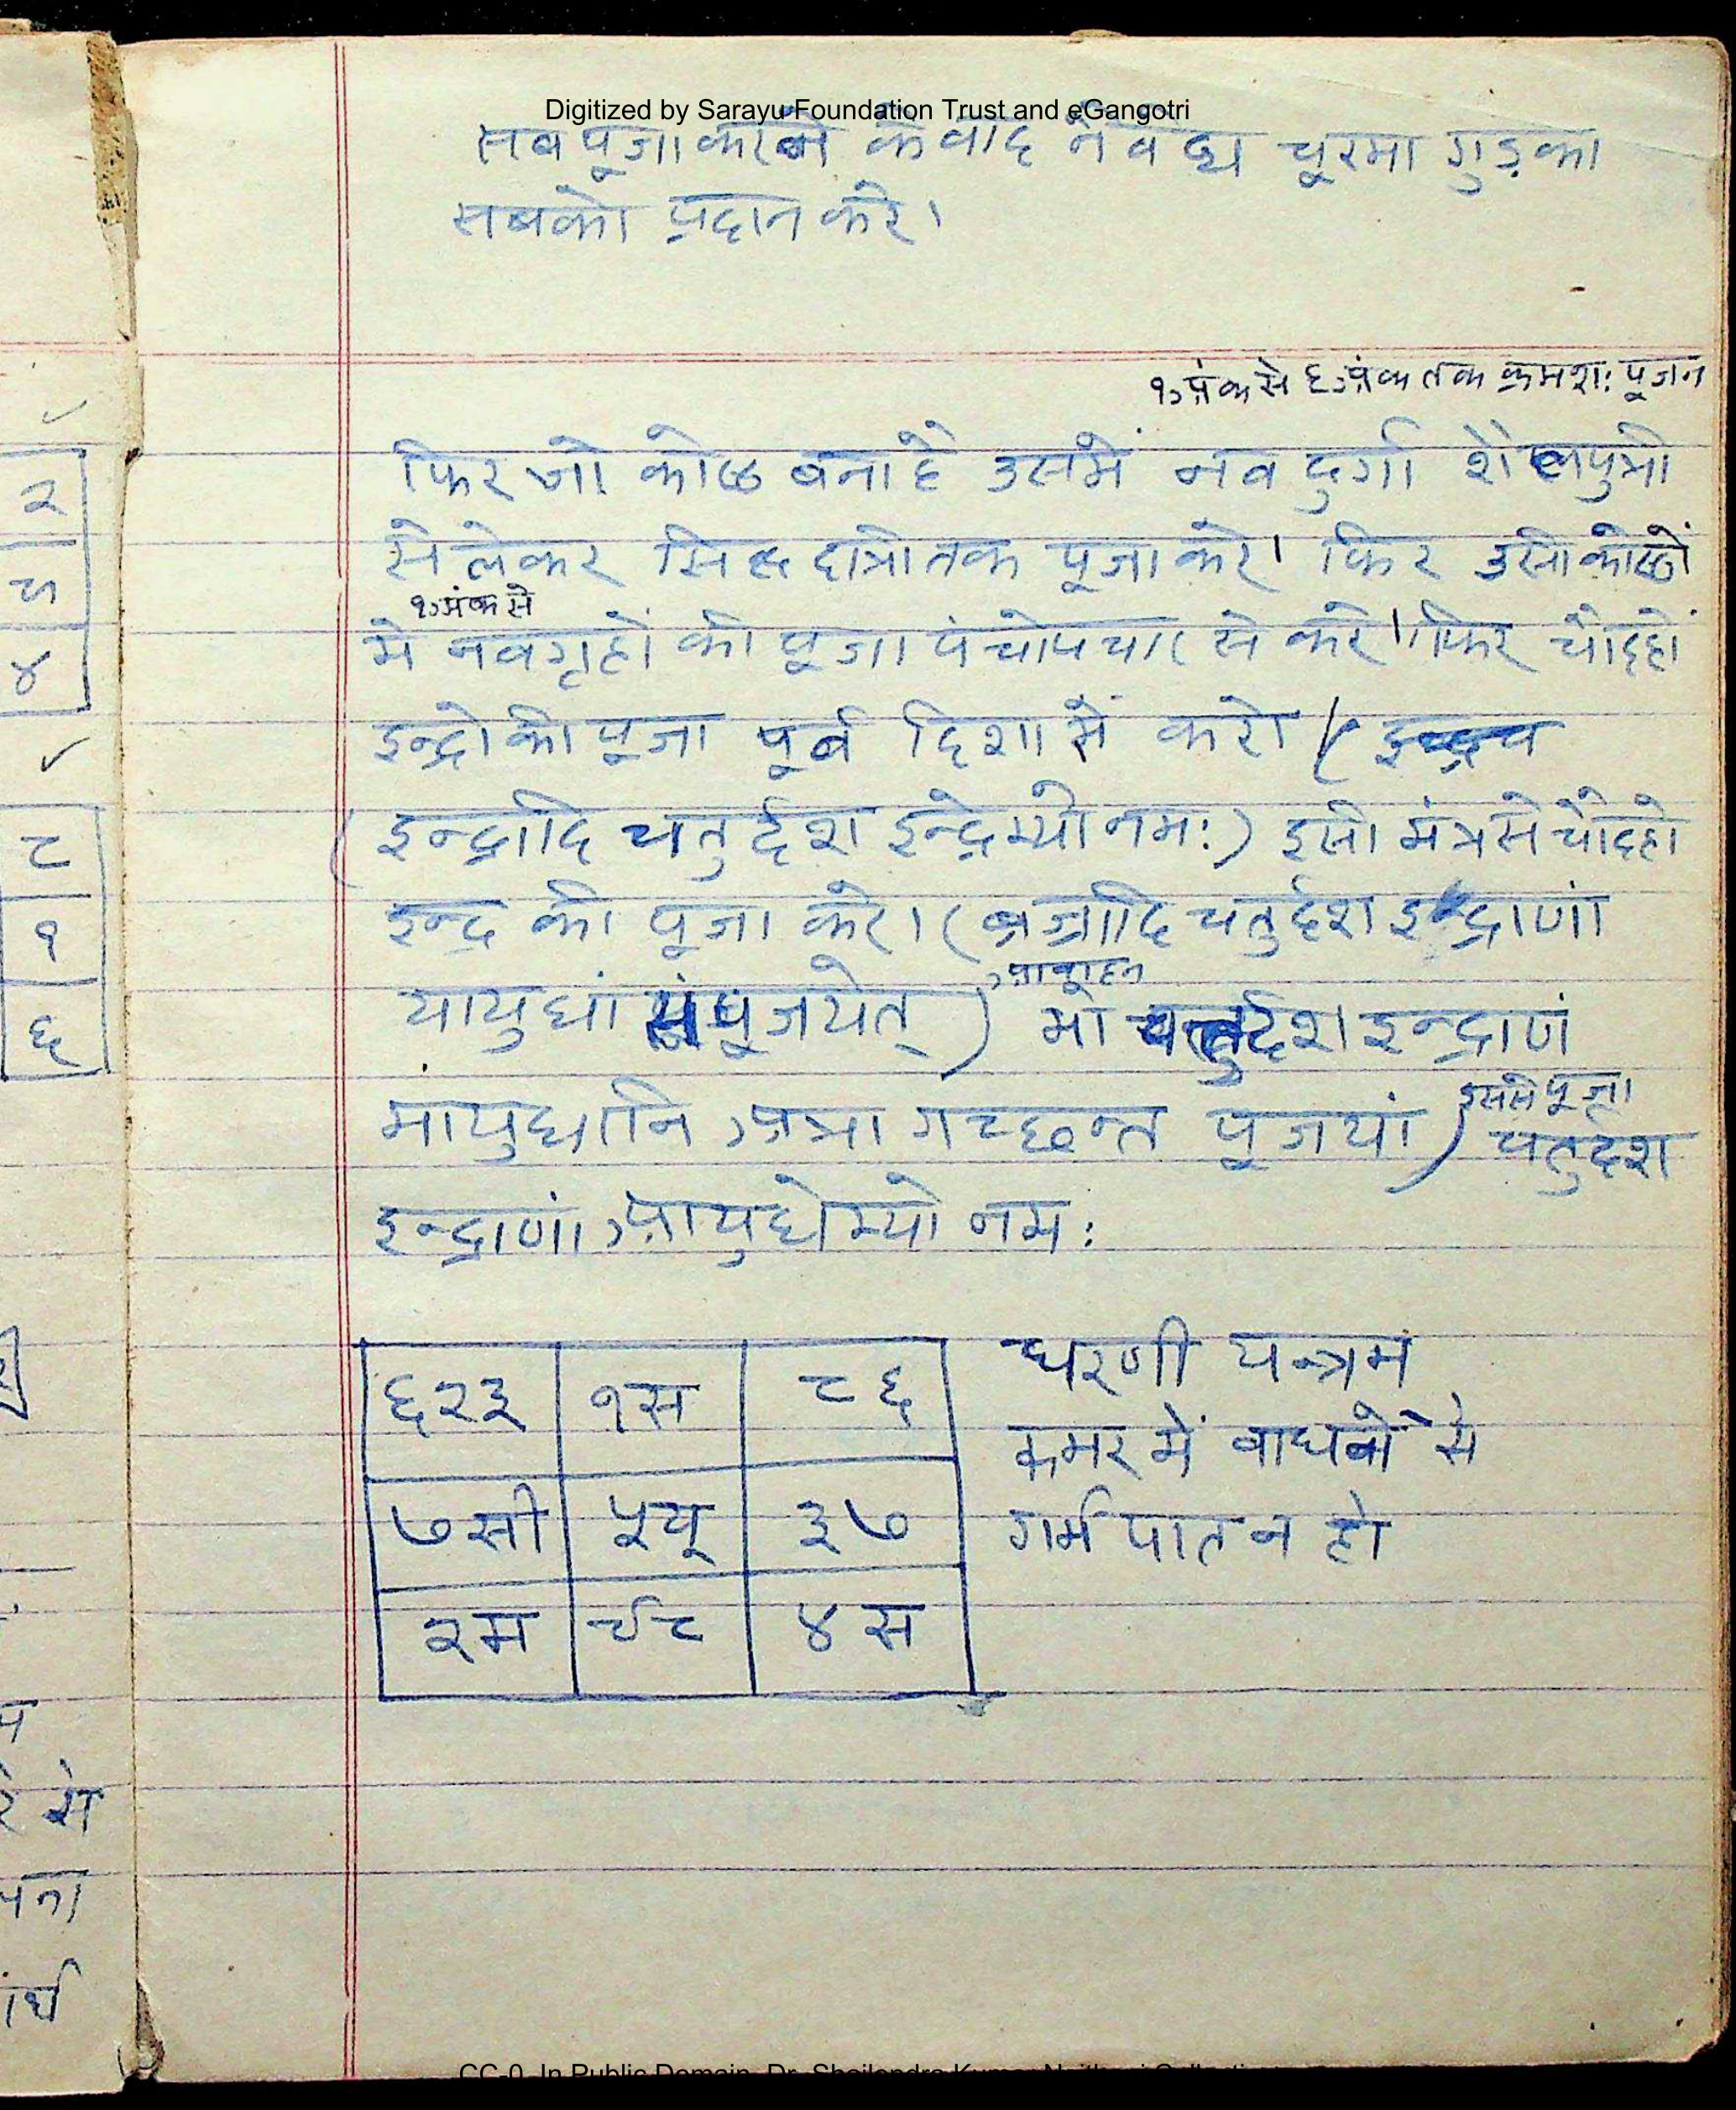 Digitized by Sarayu Foundation Trust and eGangotri
सब पूजा करने के वाद नेवद्य चूरमा गुड़ का
सबको प्रदान करे।
१ अंक से ६ अंक तक क्रमशः पूजन
फिर जो कोष्ठ बना है उसमें नव दुर्गा शैलपुत्री
से लेकर सिद्धदात्री तक पूजा करे। फिर उसी कोष्ठों
१ अंक से
मे नवगृहों की पूजा पंचोपचार से करे। फिर चौदहों
इन्द्रो की पूजा पूर्व दिशा में करो
(इन्द्रादि चतुर्दश इन्द्रेभ्यो नमः) इसी मंत्र से चौदहो
इन्द्र की पूजा करे। (ब्रज्रादि चतुर्दश इन्द्राणां
आवाहन
यायुधां संपूजयेत्) मो चतुर्दश इन्द्राणं
मायुधानि अत्रा गच्छन्त पूजयां)
इससे पूजा
चतुर्दश
इन्द्राणां आयुधेभ्यो नमः
६२३ १स ८६
७सी ५यू ३७
२म ९८ ४स
धरणी यन्त्रम
कमर में वाधने से
गर्भ पात न हो
२
५
४
८
१
६
से
CC-0. In Public Domain. Dr. Shailendra Kumar